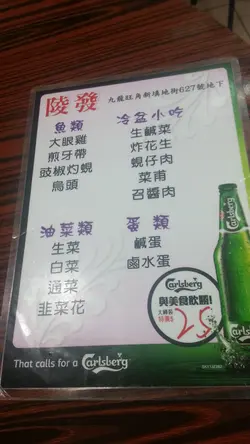 陵發
九龍旺角新填地街627號地下
魚類
大眼雞
煎牙帶
豉椒灼蜆
烏頭
冷盆小吃
生鹹菜
炸花生
蜆仔肉
菜甫
召醬肉
油菜類
生菜
白菜
通菜
韭菜花
蛋類
鹹蛋
鹵水蛋
Carlsberg
與美食歡暢!
25
Carlsberg
That calls for a Carlsberg